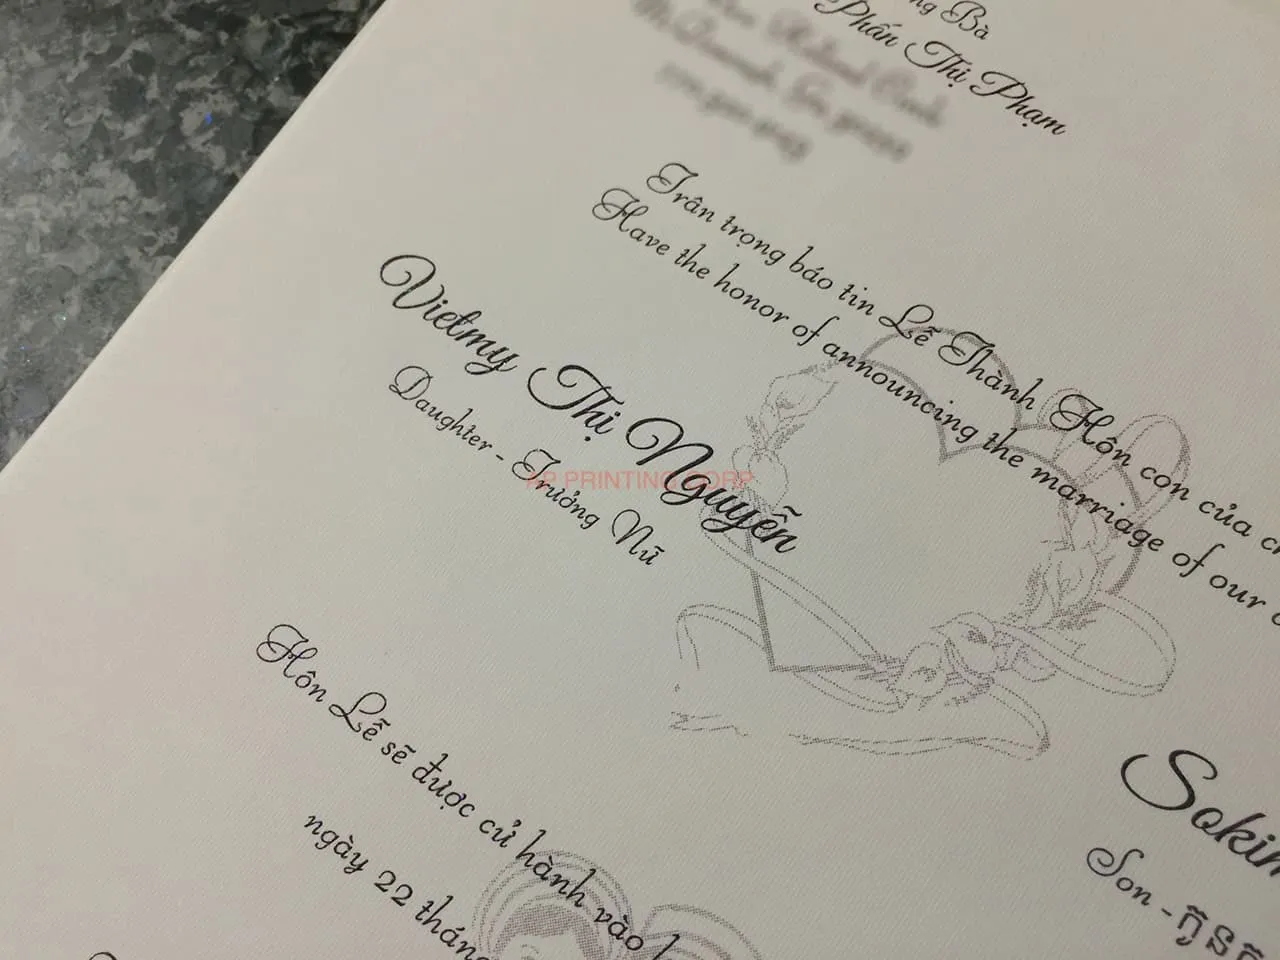 Bà
Phấn Thị Phạm
Trân trọng báo tin Lễ Thành Hôn con của
Have the honor of announcing the marriage of our
Vietmy Thị Nguyễn
Daughter - Trưởng Nữ
AP PRINTING CORP
Sokim
Son -
Hôn Lễ sẽ được cử hành vào
ngày 22 thán